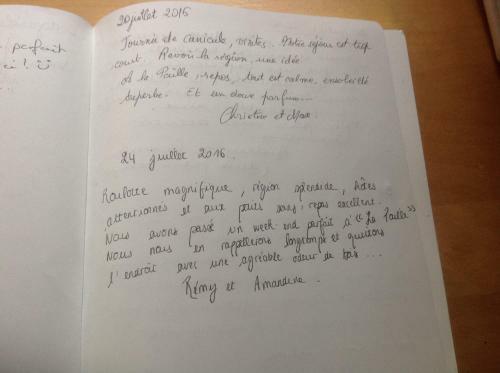 parfait
! ☺
20 juillet 2016
Journée de canicule, visites. Notre séjour est trop
court. Revoir la région, une idée.
A la Paille, repos, tout est calme, ensoleillé
superbe. Et un doux parfum...
Christine et
24 juillet 2016.
Roulotte magnifique, région splendide, hôtes
attentionnés et aux petits soins, repas excellent.
Nous avons passé un week-end parfait à "La Paille"
Nous nous en rappellerons longtemps et quittons
l'endroit avec une agréable odeur de bois...
Rémy et Amandine.